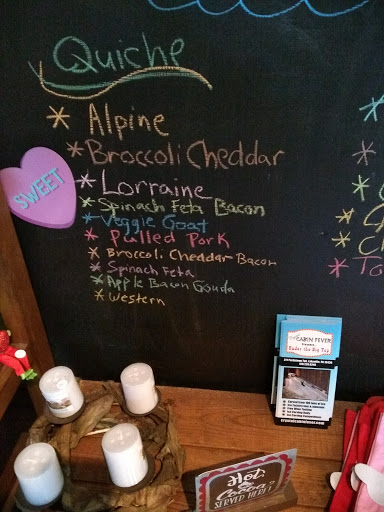 Quiche
* Alpine
* Broccoli Cheddar
* Lorraine
* Spinach Feta Bacon
* Veggie Goat
* Pulled Pork
* Broccoli Cheddar Bacon
* Spinach Feta
* Apple Bacon Gouda
* Western
SWEET
CABIN FEVER
Under the Big Top
Hot
Cocoa
SERVED HERE!